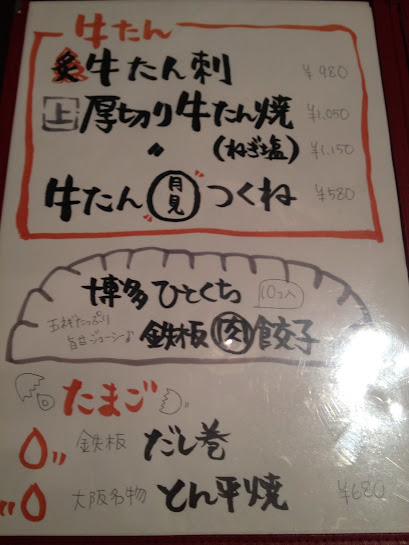 牛たん
炙牛たん刺 ¥980
上厚切り牛たん焼 ¥1,050
〃 (ねぎ塩) ¥1,150
牛たん月見つくね ¥580
博多ひとくち 10コ入
鉄板肉餃子
たまご
鉄板 だし巻
大阪名物 とん平焼 ¥680